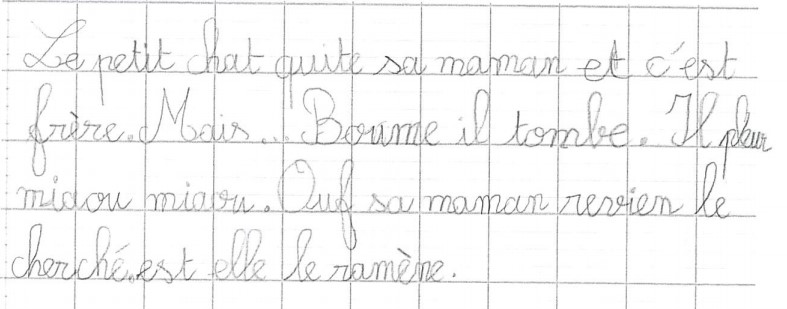 Le petit chat quite sa maman et c'est
frère. Mais... Boume il tombe. Il pleur
miaou miaou. Ouf sa maman revien le
cherché.est elle le ramène.